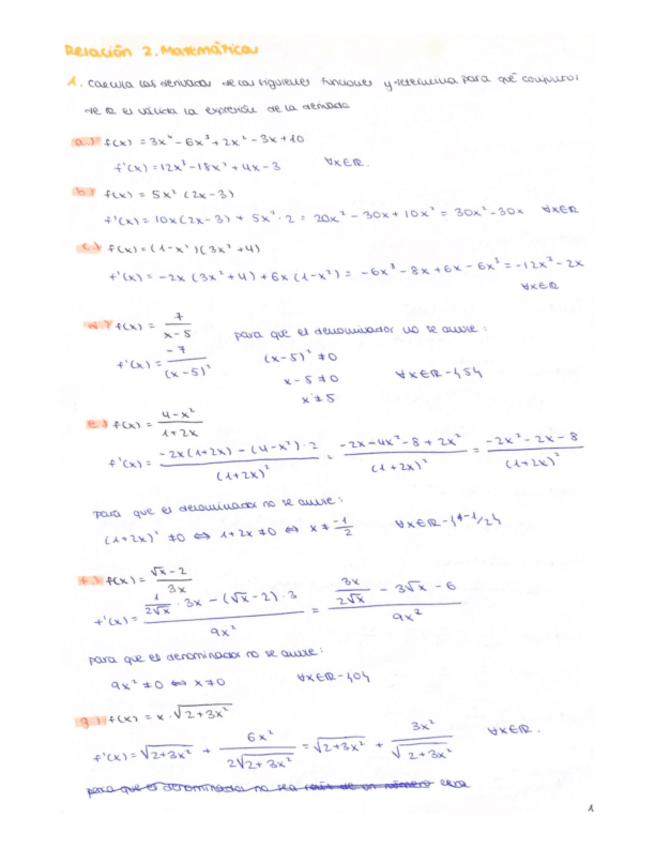 Relación 2. Matemáticas
1. Calcula las derivadas de las siguientes funciones y determina para qué conjuntos
de ℝ es válida la expresión de la derivada
a.) f(x) = 3x⁴ - 6x³ + 2x² - 3x + 10
f'(x) = 12x³ - 18x² + 4x - 3 ∀x∈ℝ.
b.) f(x) = 5x² (2x - 3)
f'(x) = 10x(2x - 3) + 5x² · 2 = 20x² - 30x + 10x² = 30x² - 30x ∀x∈ℝ
c.) f(x) = (1 - x²)(3x² + 4)
f'(x) = -2x (3x² + 4) + 6x (1 - x²) = -6x³ - 8x + 6x - 6x³ = -12x³ - 2x
∀x∈ℝ
d.) f(x) = 7 / (x - 5) para que el denominador no se anule:
f'(x) = -7 / (x - 5)² (x - 5)² ≠ 0
x - 5 ≠ 0 ∀x∈ℝ - {5}
x ≠ 5
e.) f(x) = (4 - x²) / (1 + 2x)
f'(x) = (-2x(1 + 2x) - (4 - x²) · 2) / (1 + 2x)² = (-2x - 4x² - 8 + 2x²) / (1 + 2x)² = (-2x² - 2x - 8) / (1 + 2x)²
para que el denominador no se anule:
(1 + 2x)² ≠ 0 ⇔ 1 + 2x ≠ 0 ⇔ x ≠ -1/2 ∀x∈ℝ - {-1/2}
f.) f(x) = (√x - 2) / 3x
f'(x) = (1/(2√x) · 3x - (√x - 2) · 3) / 9x² = (3x/(2√x) - 3√x - 6) / 9x²
para que el denominador no se anule:
9x² ≠ 0 ⇔ x ≠ 0 ∀x∈ℝ - {0}
g.) f(x) = x · √(2 + 3x²)
f'(x) = √(2 + 3x²) + 6x² / (2√(2 + 3x²)) = √(2 + 3x²) + 3x² / √(2 + 3x²) ∀x∈ℝ.
para que el denominador no sea raíz de un número
1